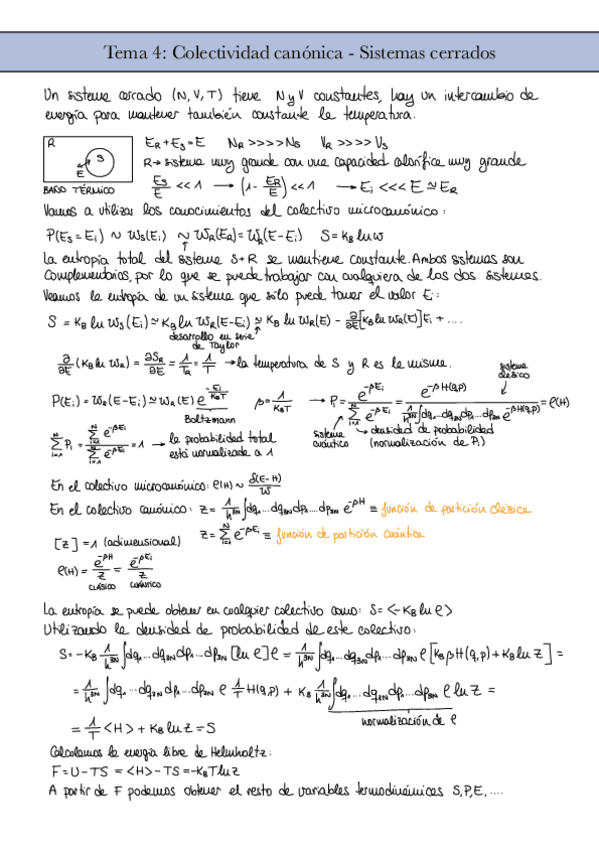 Tema 4: Colectividad canónica - Sistemas cerrados
Un sistema cerrado (N, V, T) tiene N y V constantes, hay un intercambio de
energía para mantener también constante la temperatura.
R S E
BAÑO TÉRMICO
E_R + E_S = E N_R >>>> N_S V_R >>>> V_S
R → sistema muy grande con una capacidad calorífica muy grande
E_S/E << 1 → (1 - E_R/E) << 1 → E_i <<< E ≃ E_R
Vamos a utilizar los conocimientos del colectivo microcanónico:
P(E_S = E_i) ~ W_S(E_i) ~ W_R(E_R) = W_R(E - E_i) S = K_B ln w
La entropía total del sistema S+R se mantiene constante. Ambos sistemas son
complementarios, por lo que se puede trabajar con cualquiera de los dos sistemas.
Veamos la entropía de un sistema que sólo puede tener el valor E_i:
S = K_B ln W_S(E_i) ≃ K_B ln W_R(E - E_i) ≃ K_B ln W_R(E) - ∂/∂E [K_B ln W_R(E)] E_i + ....
desarrollo en serie
de Taylor
∂/∂E (K_B ln W_R) = ∂S_R/∂E = 1/T_R = 1/T → la temperatura de S y R es la misma.
sistema
clásico
P(E_i) = W_R(E - E_i) ≃ W_R(E) e^{-E_i/K_BT} β = 1/K_BT → P_i = e^{-βE_i} / Σ_{i=1}^{N} e^{-βE_i} = e^{-βH(q,p)} / (1/h^{3N} ∫dq_1...dq_{3N} dp_1...dp_{3N} e^{-βH(q,p)}) = ρ(H)
Boltzmann
Σ_{i=1}^{N} P_i = Σ_{i=1}^{N} e^{-βE_i} / Σ_{i=1}^{N} e^{-βE_i} = 1 → la probabilidad total
está normalizada a 1
sistema
cuántico
densidad de probabilidad
(normalización de P_i)
En el colectivo microcanónico: ρ(H) ~ δ(E-H)/W
En el colectivo canónico: z = 1/h^{3N} ∫dq_1...dq_{3N} dp_1....dp_{3N} e^{-βH} ≡ función de partición clásica
z = Σ_{i=1}^{N} e^{-βE_i} ≡ función de partición cuántica
[z] = 1 (adimensional)
ρ(H) = e^{-βH}/z = e^{-βE_i}/z
CLÁSICO CUÁNTICO
La entropía se puede obtener en cualquier colectivo como: S = <-K_B ln ρ>
Utilizando la densidad de probabilidad de este colectivo:
S = -K_B 1/h^{3N} ∫dq_1...dq_{3N} dp_1...dp_{3N} [ln ρ] ρ = 1/h^{3N} ∫dq_1...dq_{3N} dp_1...dp_{3N} ρ [K_B βH(q,p) + K_B ln z] =
= 1/h^{3N} ∫dq_1...dq_{3N} dp_1...dp_{3N} ρ 1/T H(q,p) + K_B 1/h^{3N} ∫dq_1...dq_{3N} dp_1...dp_{3N} ρ ln z =
normalización de ρ
= 1/T <H> + K_B ln z = S
Calculamos la energía libre de Helmholtz:
F = U - TS = <H> - TS = -K_B T ln z
A partir de F podemos obtener el resto de variables termodinámicas S, P, E, ....